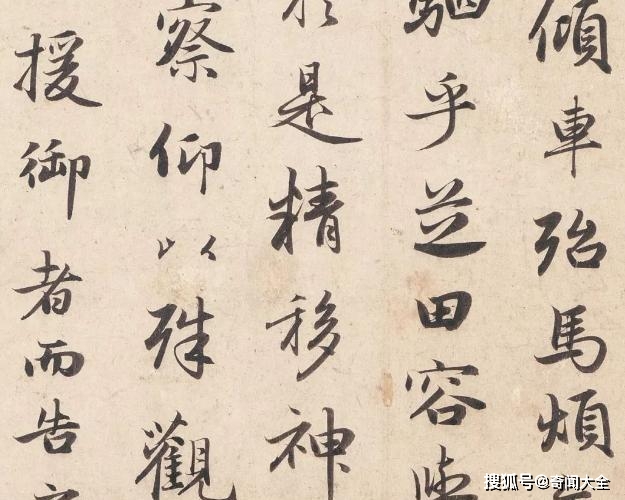 傾車殆馬煩
駟乎芝田容
於是精移神
察仰以殊觀
援御者而告
搜狐号@奇闻大全